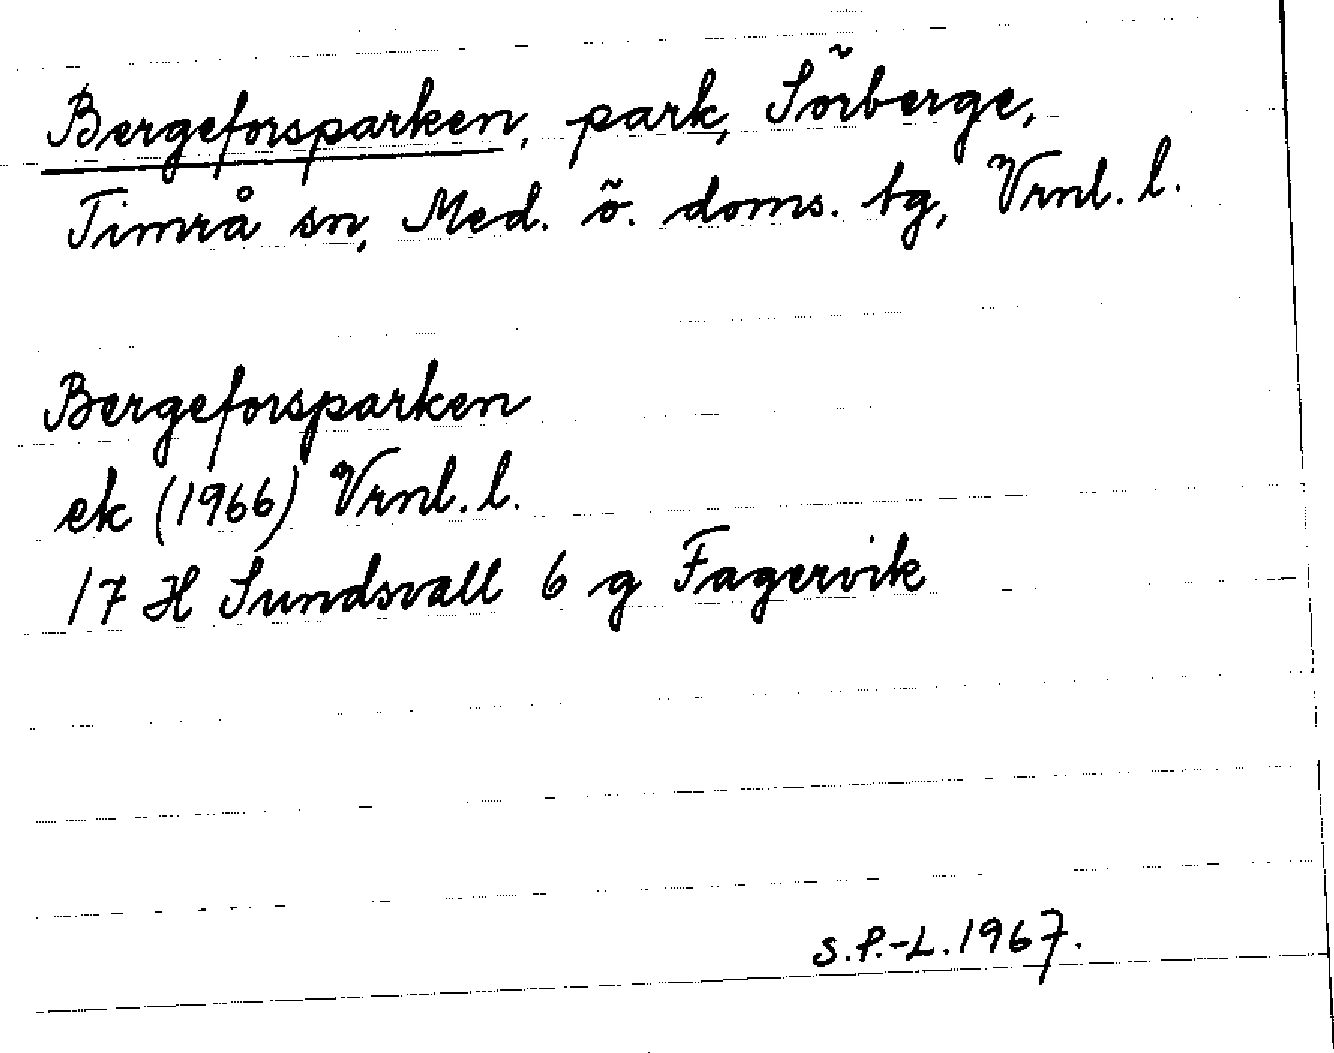 Bergeforsparken, park, Sörberge,
Timrå sn, Med. ö. doms. tg, Vrnl. l.
Bergeforsparken
ek (1966) Vrnl. l.
17 H Sundsvall 6 g Fagervik
S.P.-L. 1967.